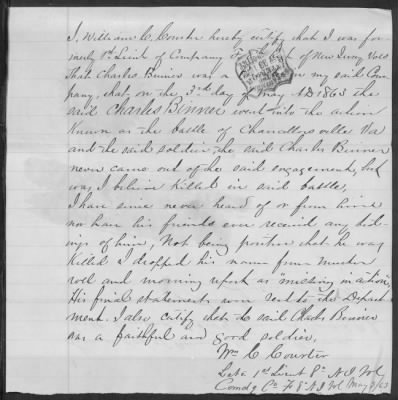 I, William C. Courter hereby certify that I was for=
merly 1st Lieut of Company of New Jersey Vols
That Charles Binner was a in my said Com=
pany, that, on the 3rd day of May AD 1863 the
said Charles Binner went into the action
Known as the battle of Chancellorsville Va
and the said soldier, the said Charles Binner
never came out of the said engagement, but
was I believe killed in said battle,
I have since never heard of or from him
nor have his friends ever received any tid-
ings of him, Not being positive that he was
Killed I dropped his name from muster
roll and morning report as "missing in action,"
His final statements were sent to the Depart
ment. I also certify that the said Charles Binner
was a faithful and good soldier,
Wm C Courter
Late 1st Lieut 8th N J Vol
Comdg Co 8th N J Vol May 3/63